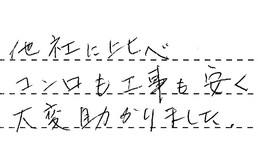 他社に比べ
コンロも工事も安く
大変助かりました。